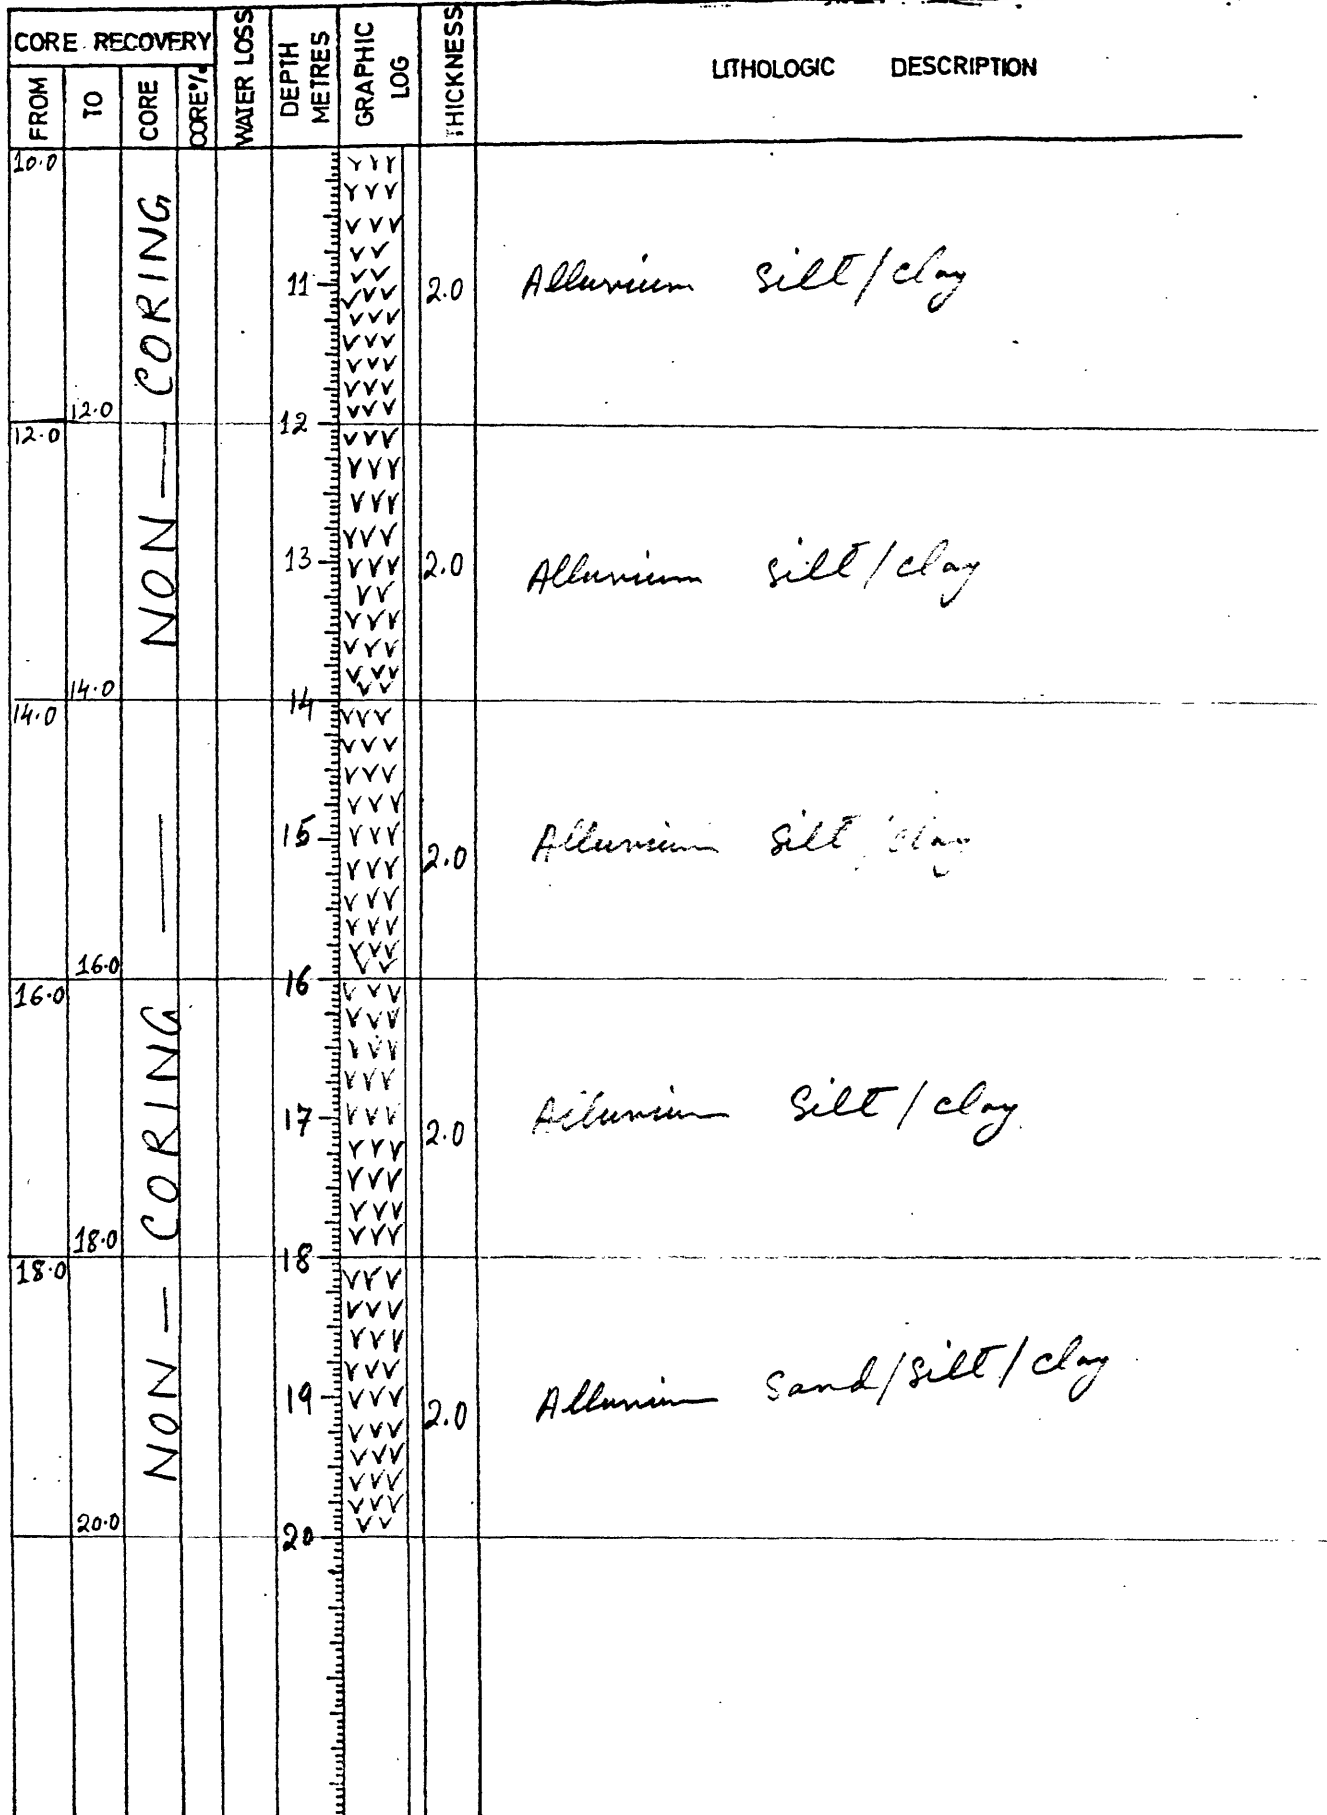 CORE RECOVERY
FROM
TO
CORE
CORE%
WATER LOSS
DEPTH METRES
GRAPHIC LOG
THICKNESS
LITHOLOGIC DESCRIPTION
10.0
NON — CORING
11
2.0
Alluvium silt/clay
12.0
12
12.0
13
2.0
Alluvium silt/clay
14.0
14
14.0
15
2.0
Alluvium silt/clay
16.0
16
16.0
NON — CORING —
17
2.0
Alluvium Silt/clay
18.0
18
18.0
19
2.0
Alluvium Sand/Silt/clay
20.0
20